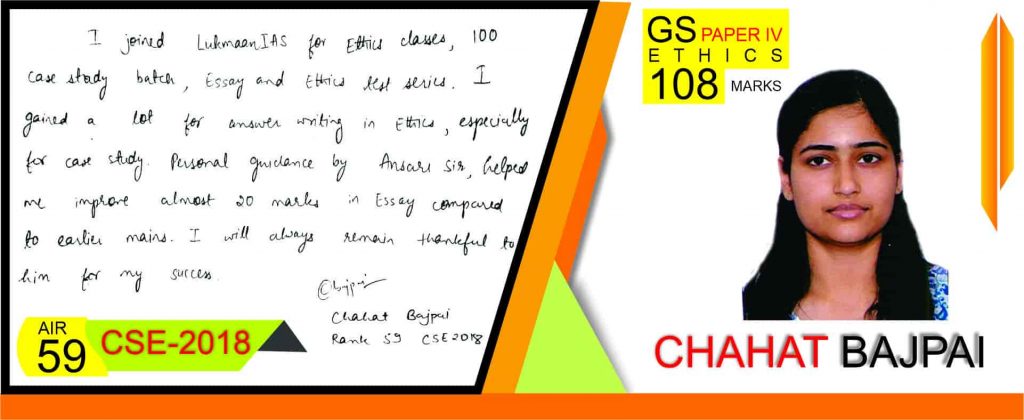 I joined LukmaanIAS for Ethics classes, 100
case study batch, Essay and Ethics test series. I
gained a lot for answer writing in Ethics, especially
for case study. Personal guidance by Ansari Sir, helped
me improve almost 20 marks in Essay compared
to earlier mains. I will always remain thankful to
him for my success.
CBajpai
Chahat Bajpai
Rank 59 CSE2018
AIR
59
CSE-2018
GS PAPER IV
ETHICS
108 MARKS
CHAHAT BAJPAI